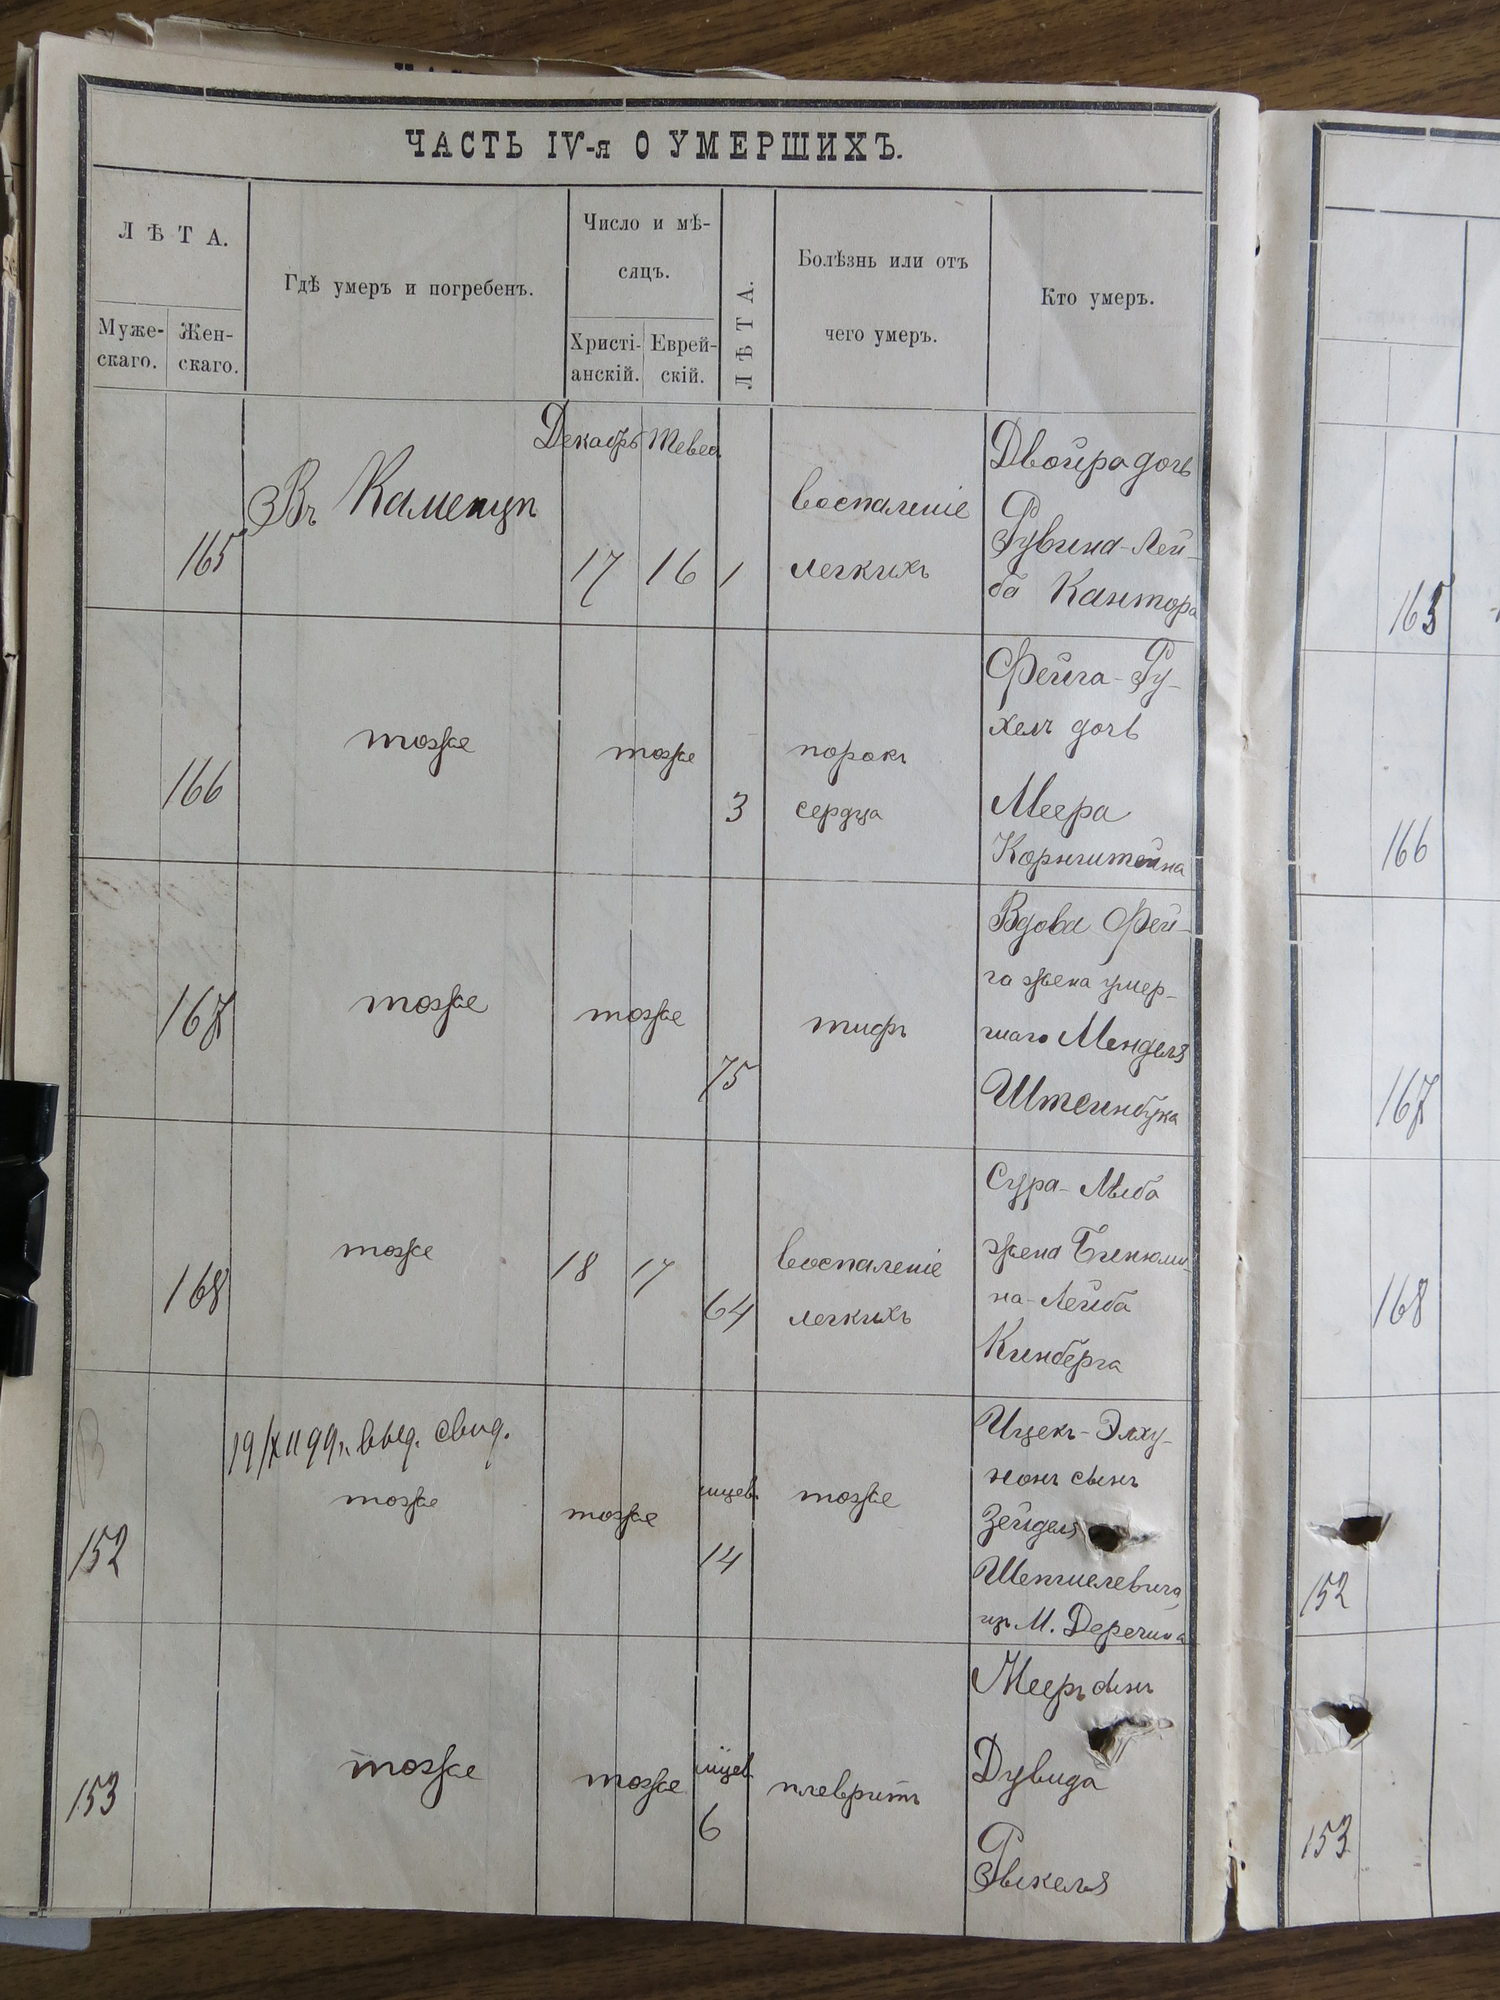 ЧАСТЬ IV-я О УМЕРШИХЪ.
ЛѢТА.
Муже-
скаго.
Жен-
скаго.
Гдѣ умеръ и погребенъ.
Число и мѣ-
сяцъ.
Христі-
анскій.
Еврей-
скій.
ЛѢТА.
Болѣзнь или отъ
чего умеръ.
Кто умеръ.
165
Въ Каменцѣ
Декабрь
17
Тевеса
16
1
воспаленіе
легкихъ
Двойра дочь
Рувина-Лей-
ба Кантора
166
тоже
тоже
3
порокъ
сердца
Фейга-Ру-
хель дочь
Меера
Корнштейна
167
тоже
тоже
75
тифъ
Вдова Фей-
га жена умер-
шаго Менделя
Штейнбука
168
тоже
18
17
64
воспаленіе
легкихъ
Сура-Лѣба
жена Бенюми-
на-Лейба
Кинберга
152
19/XII 99 г. выд. свид.
тоже
тоже
мцев.
14
тоже
Ицекъ-Элху-
нонъ сынъ
Зейделя
Шепшелевича
изъ М. Деречина
153
тоже
тоже
мцев.
6
плевритъ
Мееръ сынъ
Дувида
Рыкеля
165
166
167
168
152
153